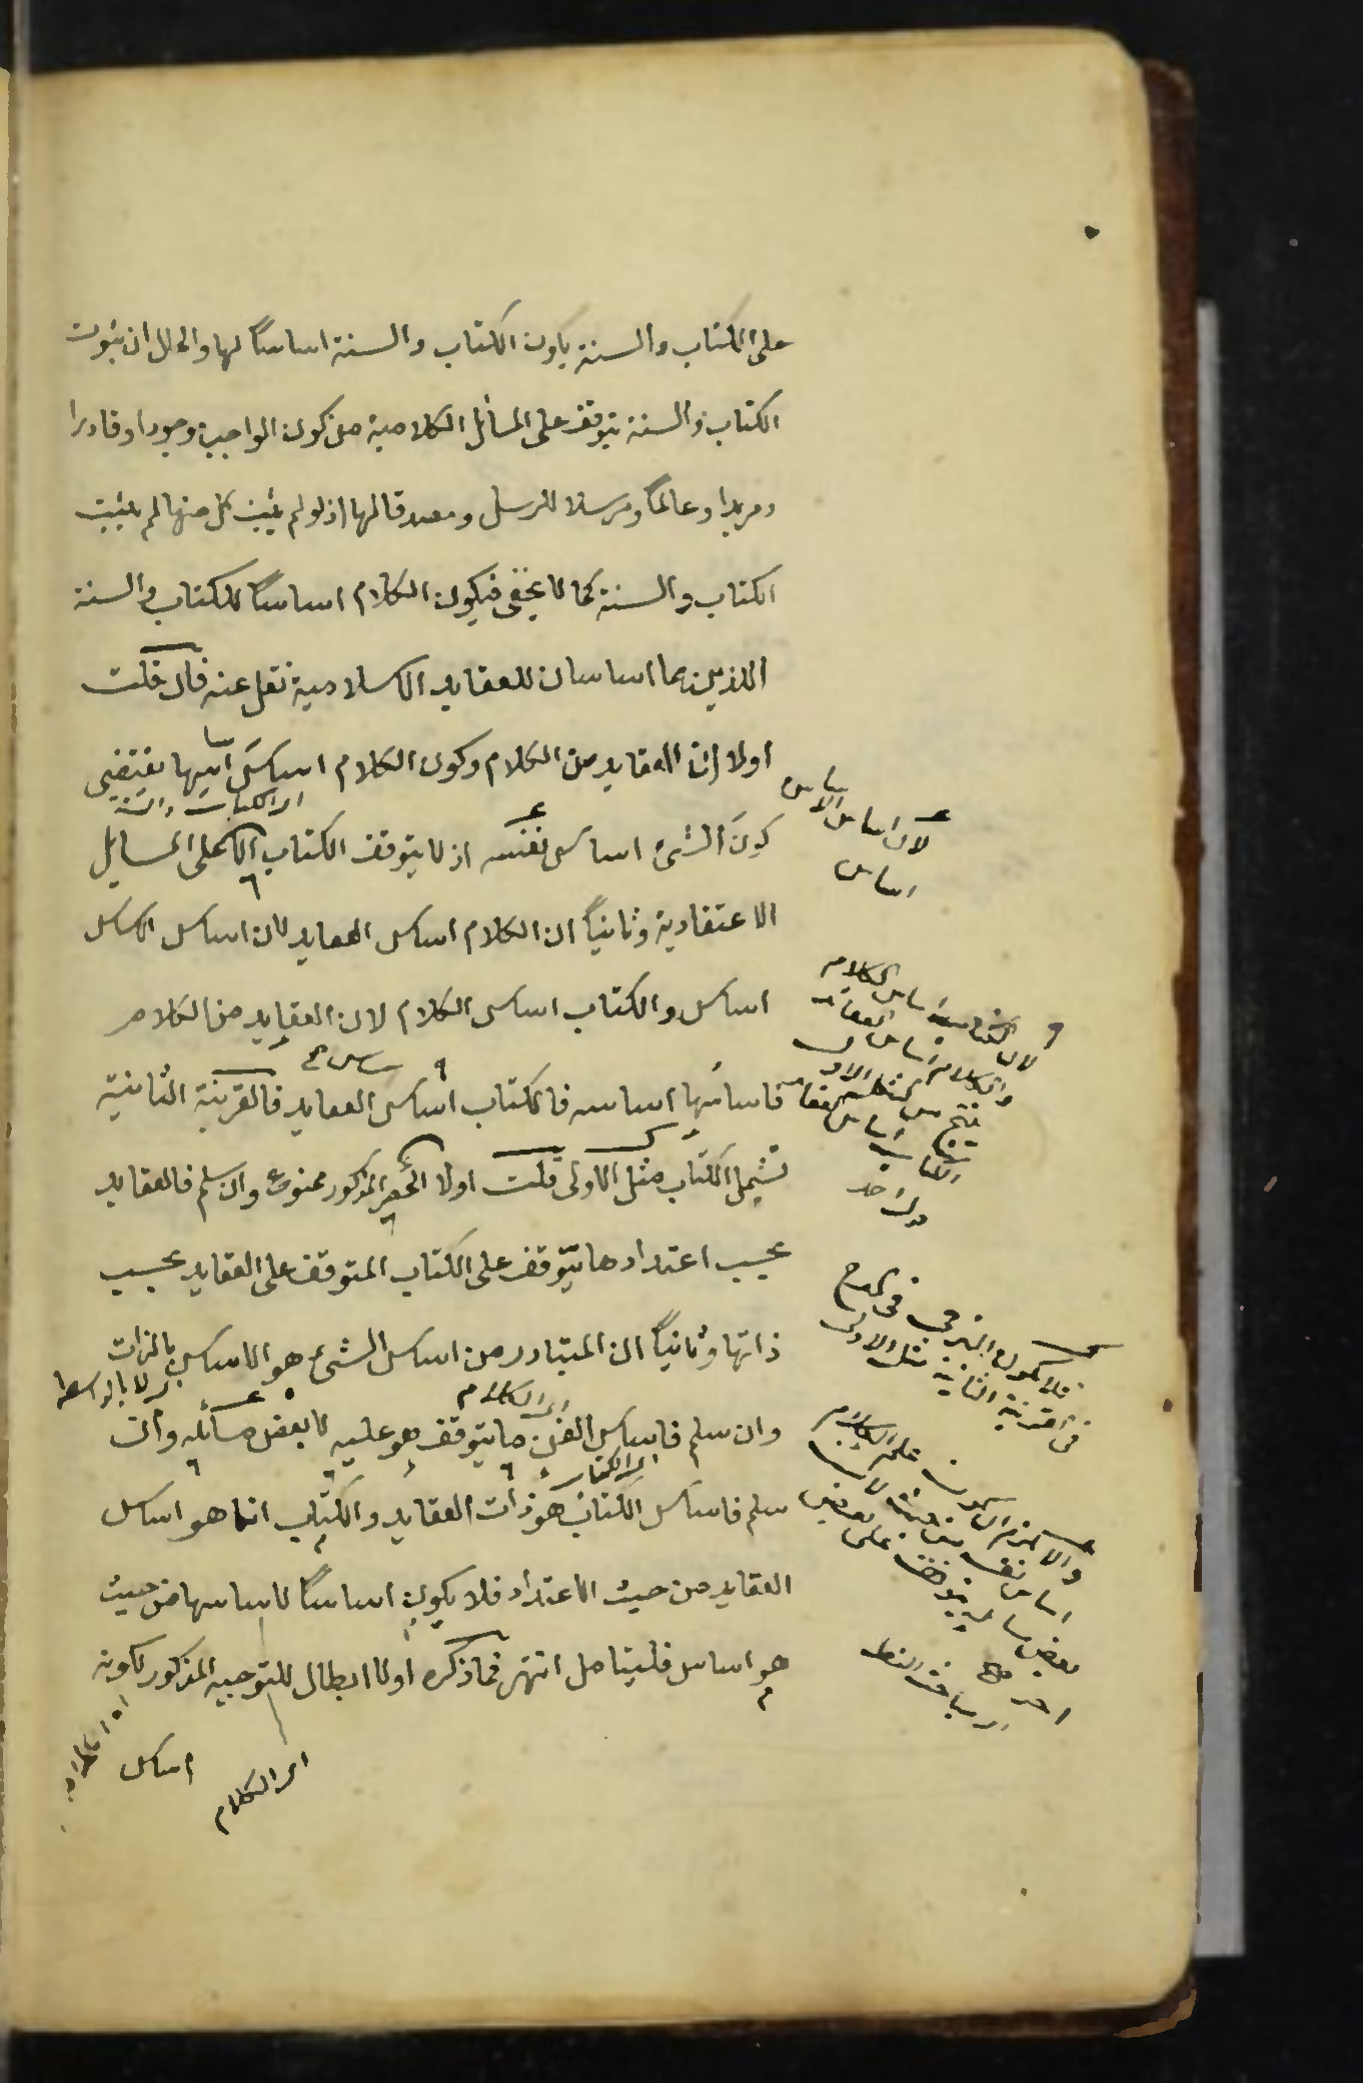 على الكتاب والسنة يكون الكتاب والسنة اساسًا لها والحال ان ثبوت
الكتاب والسنة يتوقف على المسائل الكلامية من كون الواجب موجودا وقادرا
ومريدا وعالمًا ومرسلا للرسل ومصدقا لها اذ لو لم يثبت كل منها لم يثبت
الكتاب والسنة كما لا يخفى فيكون الكلام اساسًا للكتاب والسنة
اللذين هما اساسان للعقايد الاسلامية نقل عنه فان قلت
اولا ان العقايد من الكلام وكون الكلام اساس اساسها يقتضي
اى الكتاب والسنة
كون الشئ اساس نفسه اذ لا يتوقف الكتاب الا على المسايل
الاعتقادية وثانيًا ان الكلام اساس العقايد لان اساس الاساس
اساس والكتاب اساس الكلام لان العقايد من الكلام
فاساسها اساسه فالكتاب اساس العقايد فالقرينة الثانية
تشمل الكتاب مثل الاولى قلت اولا الحصر المذكور ممنوع وان سلم فالعقايد
بحسب اعتدادها تتوقف على الكتاب المتوقف على العقايد بحسب
ذاتها وثانيًا ان المتبادر من اساس الشئ هو الاساس بالذات
لا بالواسطة
اى الكلام
وان سلم فاساس الفن ما يتوقف هو عليه لا بعض مسائله وان
اى الكتاب
سلم فاساس الكتاب هو ذات العقايد والكتاب انما هو اساس
العقايد من حيث الاعتداد فلا يكون اساسًا لاساسها من حيث
هو اساس فليتامل انتهى فما ذكره اولا ابطال للتوجيه المذكور لكونه
اى الكلام
اساس
لان اساس الاساس
اساس
لان الكتاب اساس الكلام
والكلام اساس العقايد
ينتج من الشكل الاول
الكتاب اساس العقايد
فلا يكون الترقي في المدح
في القرينة الثانية مثل الاولى
والا يلزم ان يكون علم الكلام
اساس نفسه
بعض مسائله يتوقف على بعض